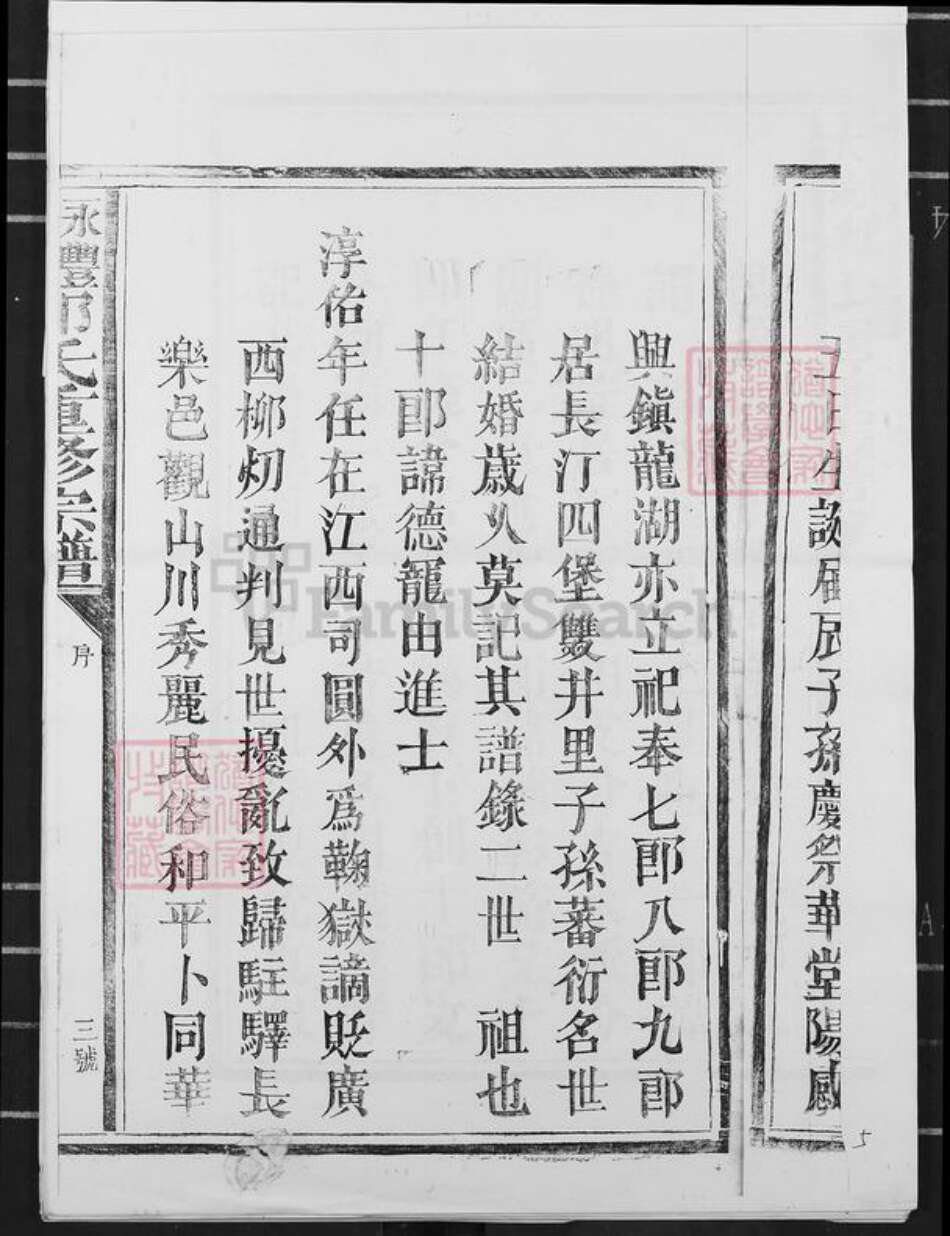 生諛屆辰子孫慶祭華堂陽感
興鎭龍湖亦立祀奉七郎八郎九郎
居長汀四堡雙井里子孫蕃衍名世
結婚歲久莫記其譜錄二世 祖也
十郎諱德寵由進士
淳佑年任在江西司圓外爲鞠獄謫貶廣
西柳州通判見世擾亂致歸駐驛長
樂邑觀山川秀麗民俗和平卜同華
永豐鄒氏重修宗譜
序
三號
5
FamilySearch